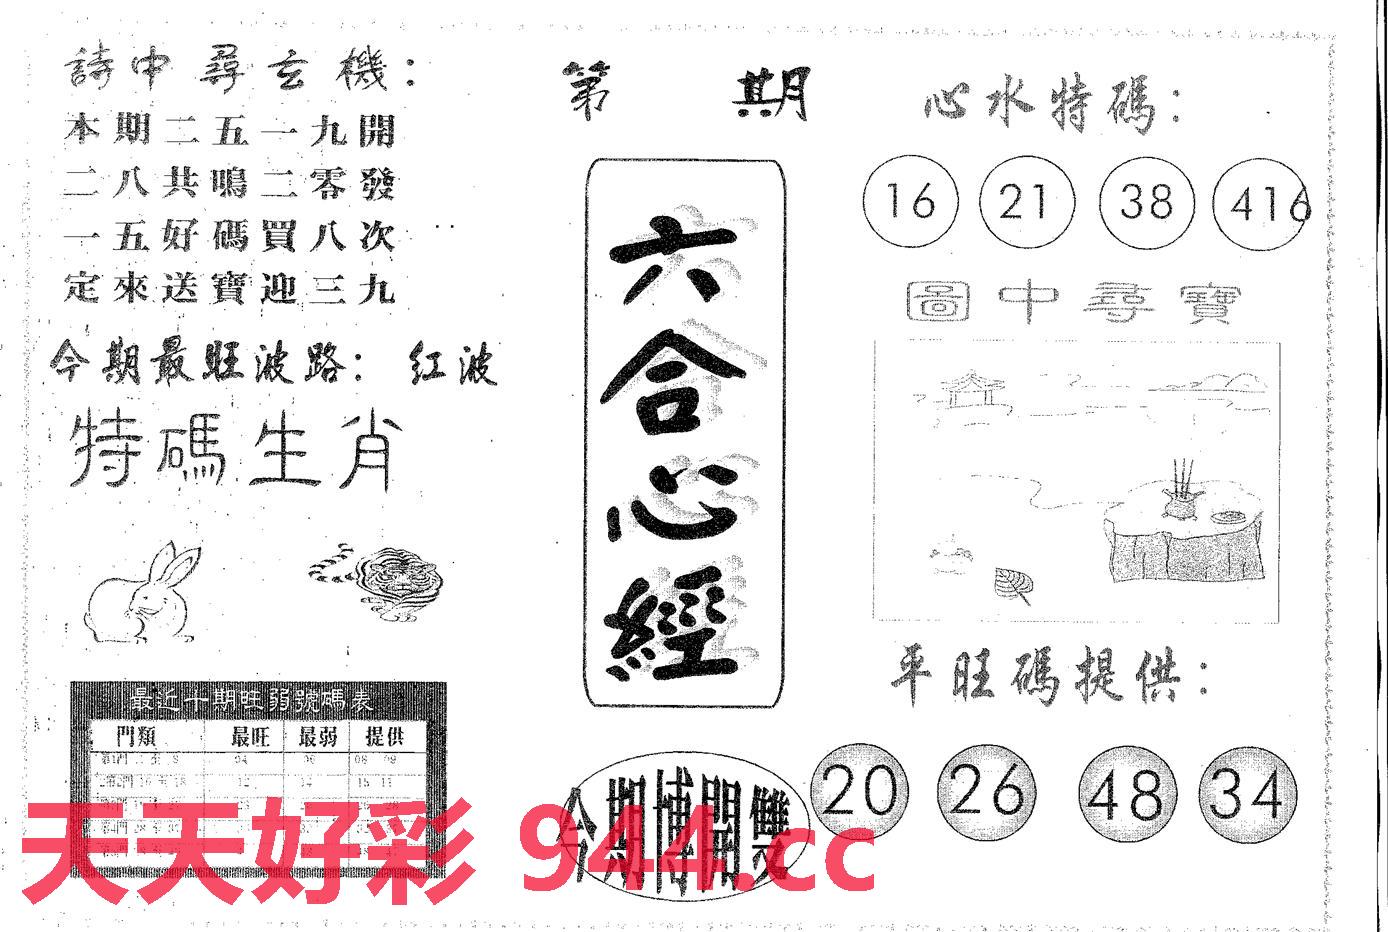 詩中尋玄機：
本期二五一九開
二八共鳴二零發
一五好碼買八次
定來送寶迎三九
今期最旺波路： 红波
特碼生肖
最近十期旺弱號碼表
門類 最旺 最弱 提供
第 期
六合心經
今期博開雙
心水特碼：
16 21 38 416
圖中尋寶
平旺碼提供：
20 26 48 34
天天好彩 944.cc